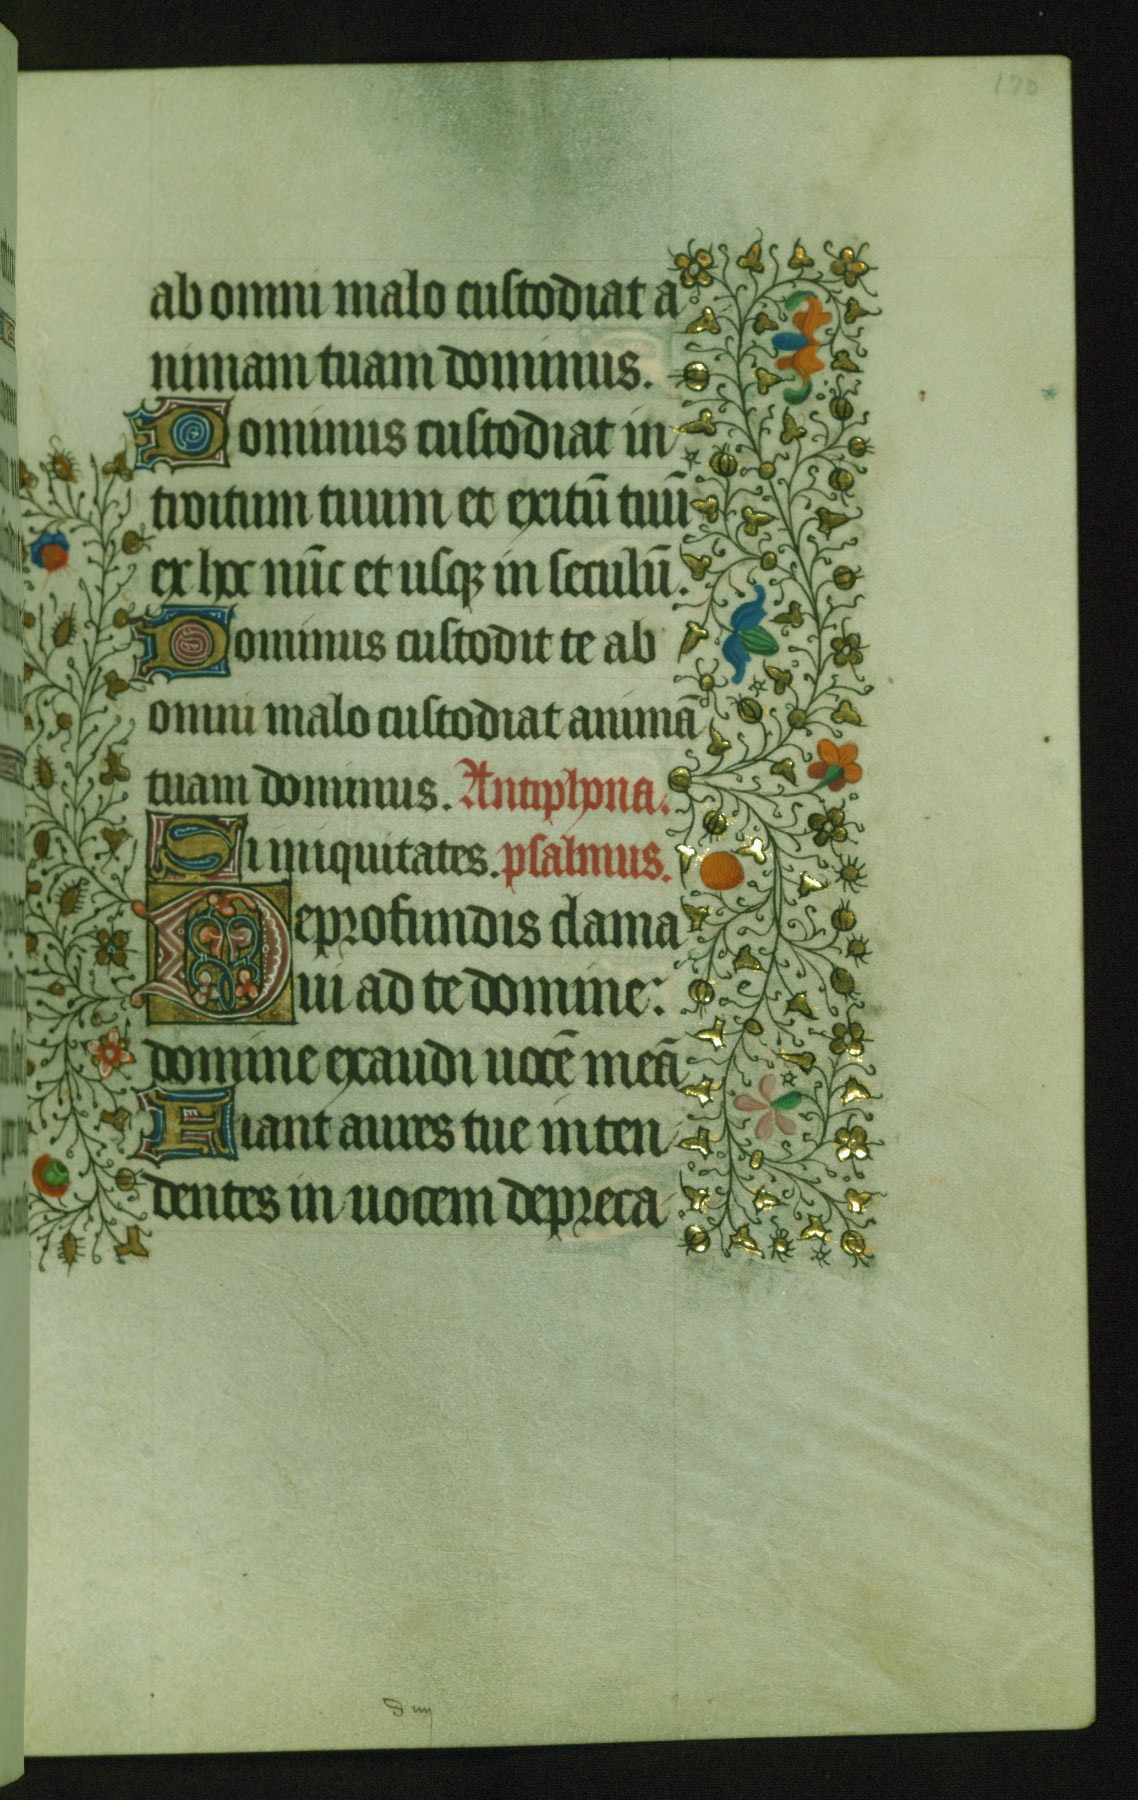 170
ab omni malo custodiat a
nimam tuam dominus.
Dominus custodiat in
troitum tuum et exitū tuū
ex hoc nūc et usqꝫ in seculū.
Dominus custodit te ab
omni malo custodiat animā
tuam dominus. Antiphona.
Si iniquitates. psalmus.
De profundis clama
ui ad te domine:
domine exaudi uocē meā
Fiant aures tue inten
dentes in uocem depreca